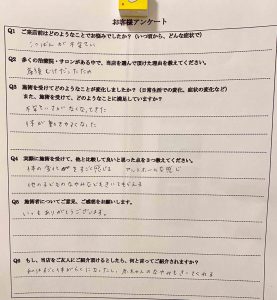 お客様アンケート
Q1 ご来店前はどのようなことでお悩みでしたか?(いつ頃から、どんな症状で)
こつばんが不安てい
Q2 多くの治療院・サロンがある中で、当店を選んで頂けた理由を教えてください。
産後むけだったため
Q3 施術を受けてどのようなことが変化しましたか?(日常生活での変化、症状の変化など)
また、施術を受けて、どのようなことに満足していますか?
不安ていさがなくなってきた
体が動きやすくなった
Q4 実際に施術を受けて、他と比較して良いと思った点を3つ教えてください。
体の変化がをすぐ感じる アットホームな感じ
他の子どものなやみなどもきいてもらえる
Q5 施術者についてご意見、ご感想をお願いします。
いつもありがとうございます。
Q6 もし、当店をご友人にご紹介頂けるとしたら、何と言ってご紹介されますか?
体がらくになったし、赤ちゃんのなやみもきいてくれる